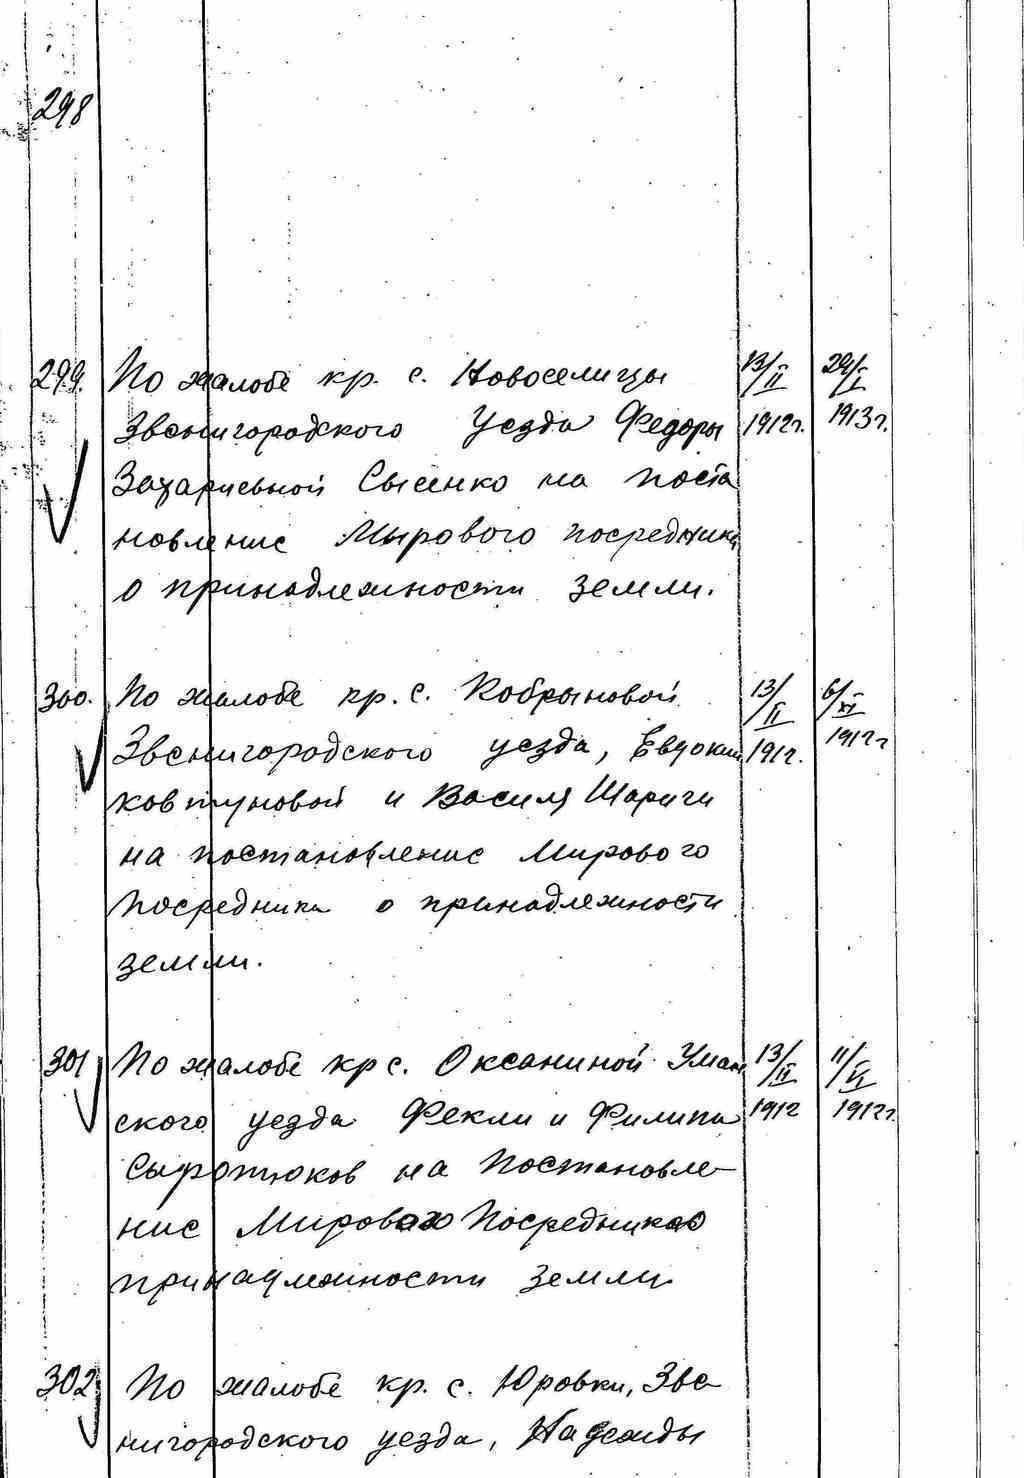 298
299. По жалобе кр. с. Новоселицы 13/II 29/I
Звенигородского Уезда Федоры 1912г. 1913г.
Захариевной Сысенко на поста
новление Мырового посредника
о принадлежности земли.
300. По жалобе кр. с. Кобрыновой 13/II 6/XI
Звенигородского уезда, Евдокии 1912. 1912г
Ковтуновой и Василя Шариги
на постановление Мирового
Посредника о принадлежности
земли.
301 По жалобе кр с. Оксаниной Уман 13/II 11/VI
ского уезда Феклы и Филипа 1912 1912г.
Сыротюков на Постановле-
ние Мирового Посредника о
принадлежности земли
302 По жалобе кр. с. Юровки, Зве-
нигородского уезда, Надежды